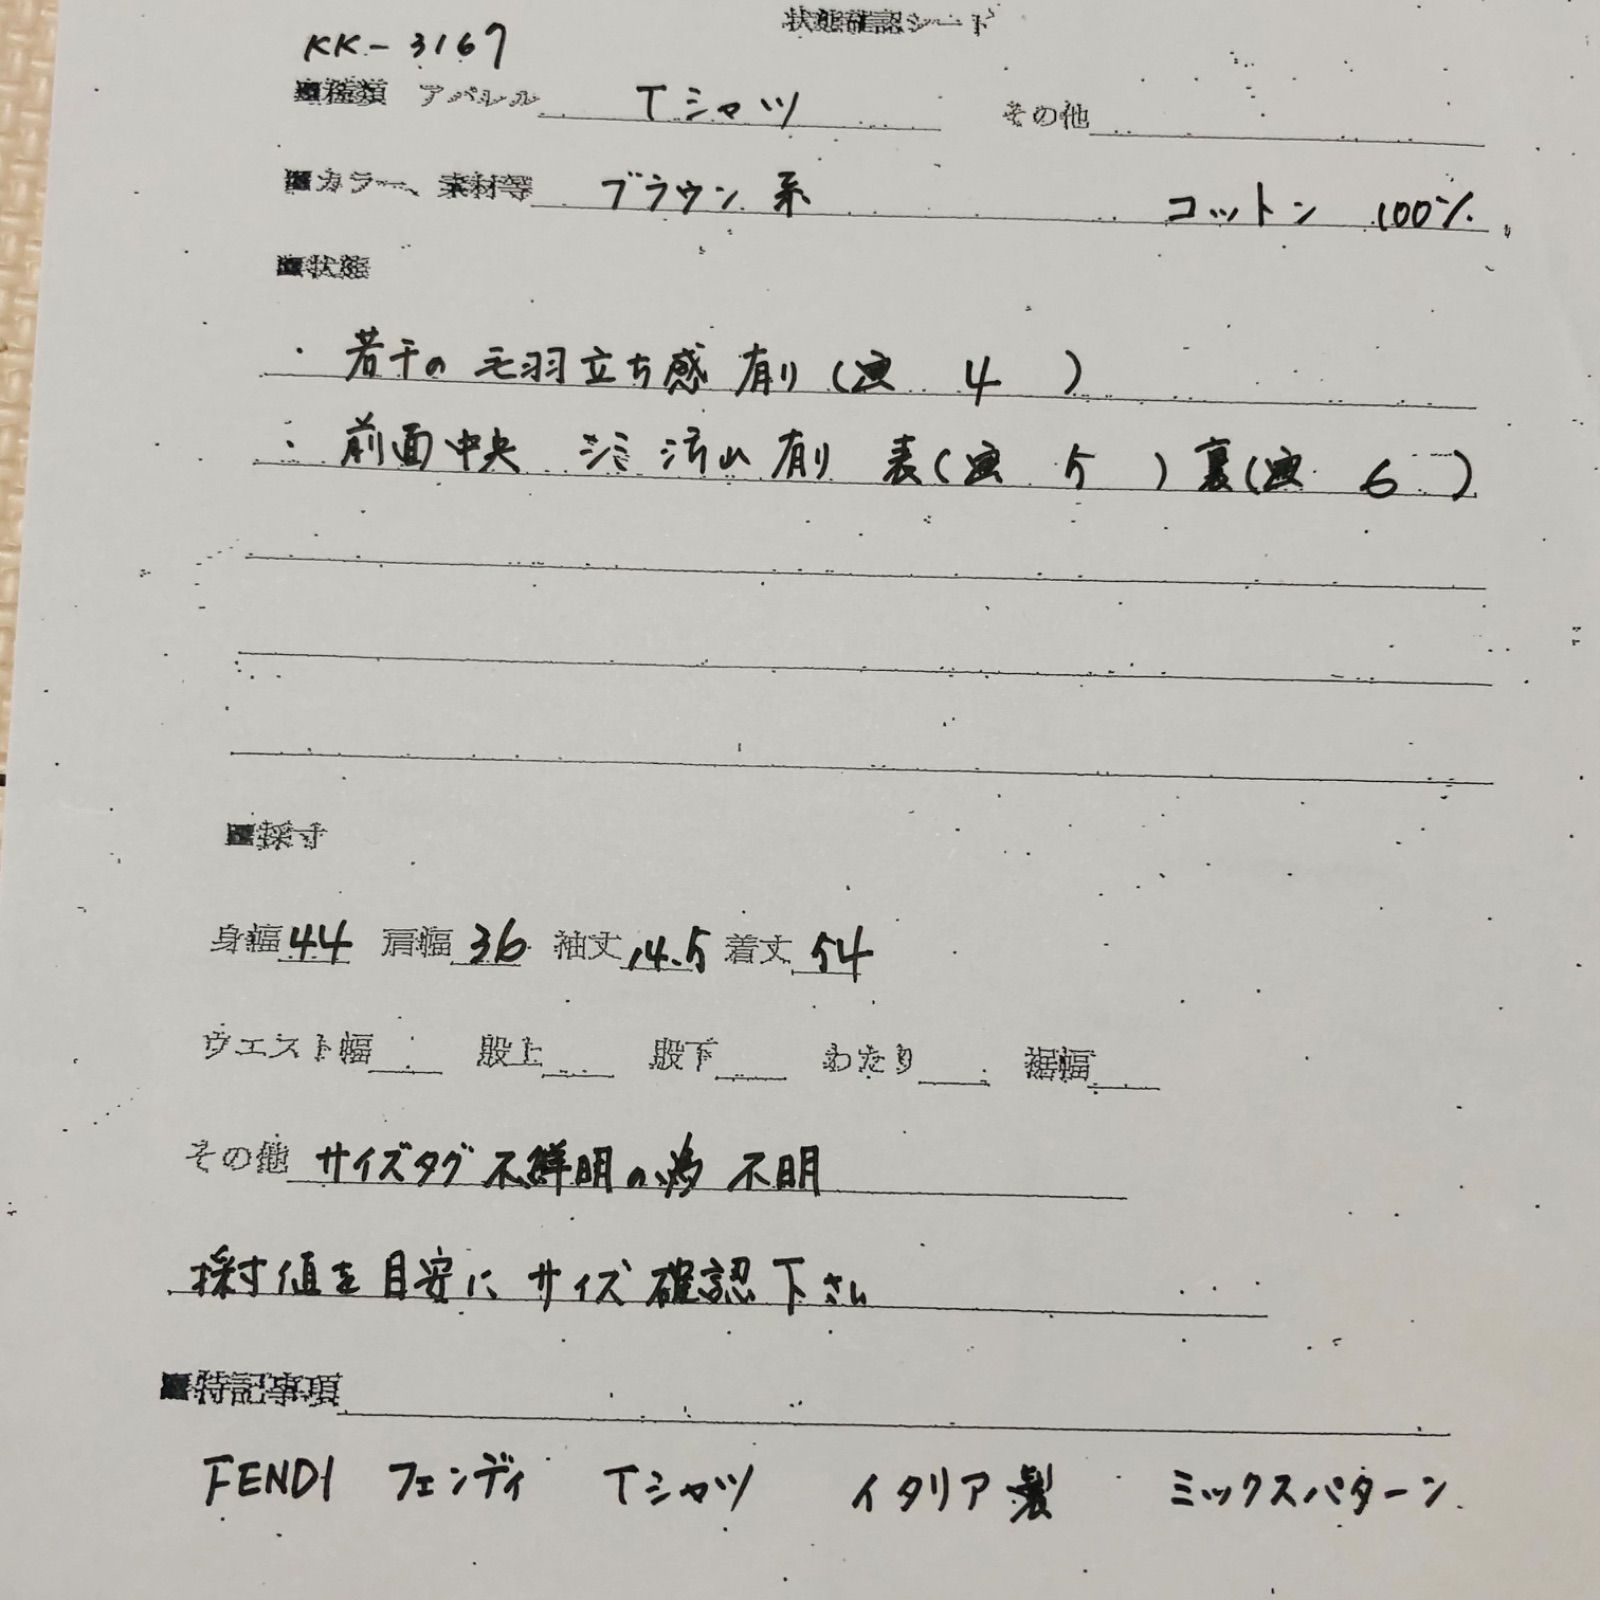 状態確認シート
KK-3167
■種類 アパレル Tシャツ その他
■カラー、素材等 ブラウン系 コットン 100%
■状態
・若干の毛羽立ち感有り(画 4 )
・前面中央 シミ汚れ有り 表(画 5 ) 裏(画 6 )
■採寸
身幅44 肩幅36 袖丈14.5 着丈54
ウエスト幅 股上 股下 わたり 裾幅
その他 サイズタグ不鮮明の為 不明
採寸値を目安にサイズ確認下さい
■特記事項
FENDI フェンディ Tシャツ イタリア製 ミックスパターン